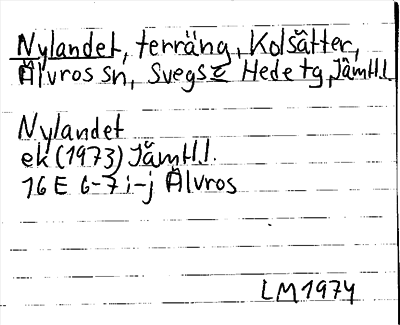 Nylandet, terräng, Kolsätter,
Älvros sn, Svegs o Hede tg, Jämtl.l
Nylandet
ek (1973) Jämtl.l.
16 E 6-7 i-j Älvros
LM 1974